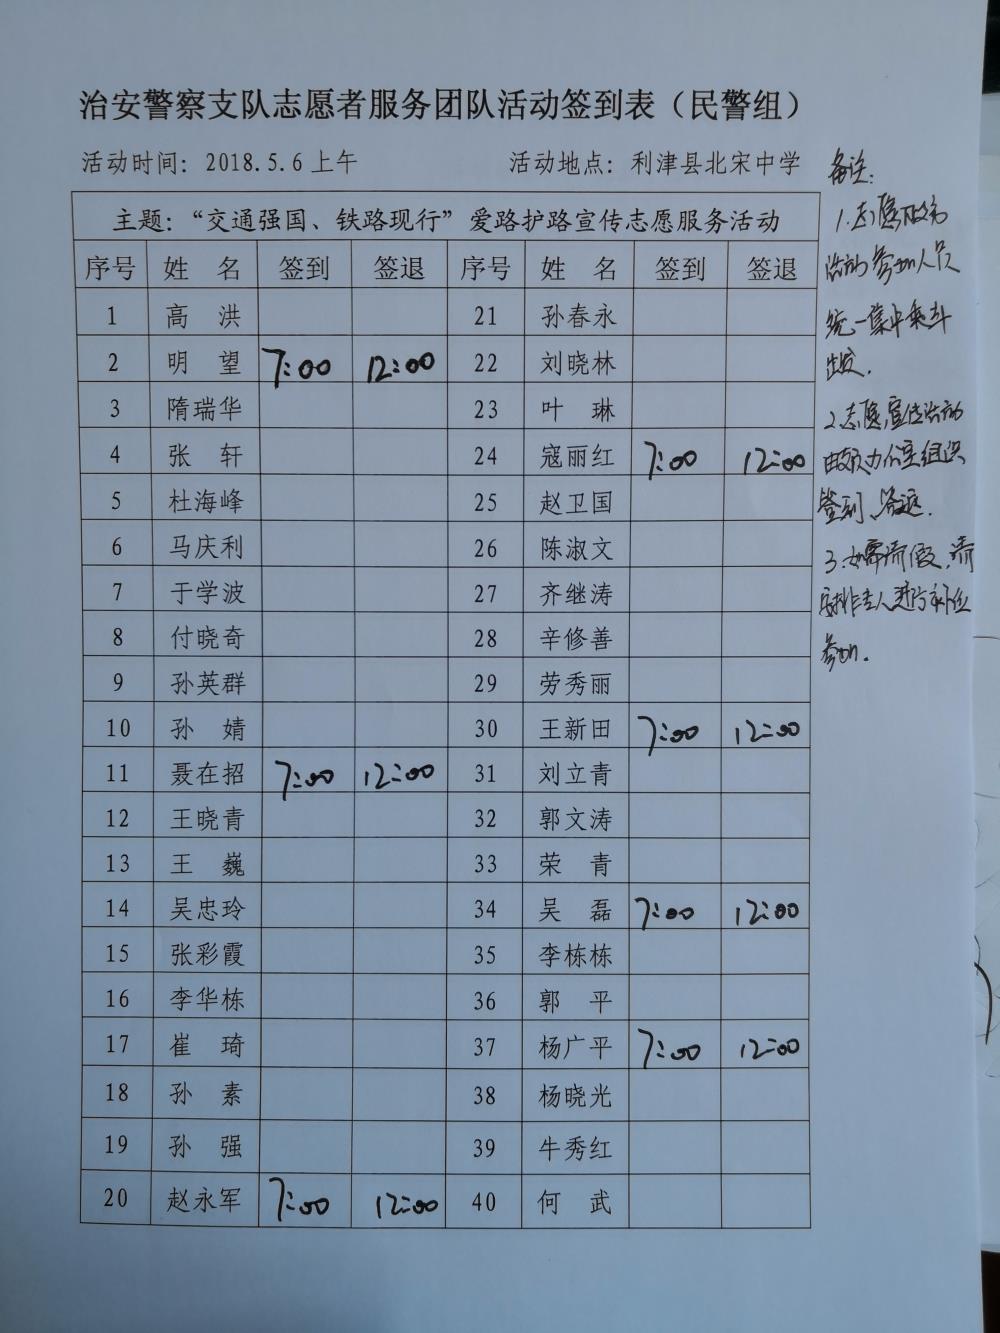 治安警察支队志愿者服务团队活动签到表（民警组）
活动时间：2018.5.6上午 活动地点：利津县北宋中学
主题：“交通强国、铁路现行”爱路护路宣传志愿服务活动
序号 姓 名 签到 签退 序号 姓 名 签到 签退
1 高 洪 21 孙春永
2 明 望 7:00 12:00 22 刘晓林
3 隋瑞华 23 叶 琳
4 张 轩 24 寇丽红 7:00 12:00
5 杜海峰 25 赵卫国
6 马庆利 26 陈淑文
7 于学波 27 齐继涛
8 付晓奇 28 辛修善
9 孙英群 29 劳秀丽
10 孙 婧 30 王新田 7:00 12:00
11 聂在招 7:00 12:00 31 刘立青
12 王晓青 32 郭文涛
13 王 巍 33 荣 青
14 吴忠玲 34 吴 磊 7:00 12:00
15 张彩霞 35 李栋栋
16 李华栋 36 郭 平
17 崔 琦 37 杨广平 7:00 12:00
18 孙 素 38 杨晓光
19 孙 强 39 牛秀红
20 赵永军 7:00 12:00 40 何 武
备注：
1.志愿服务
活动参加人员
统一集中乘车
出发.
2.志愿宣传活动
由 办公室组织
签到、签退.
3.如需请假，请
安排 人进行补位
参加.